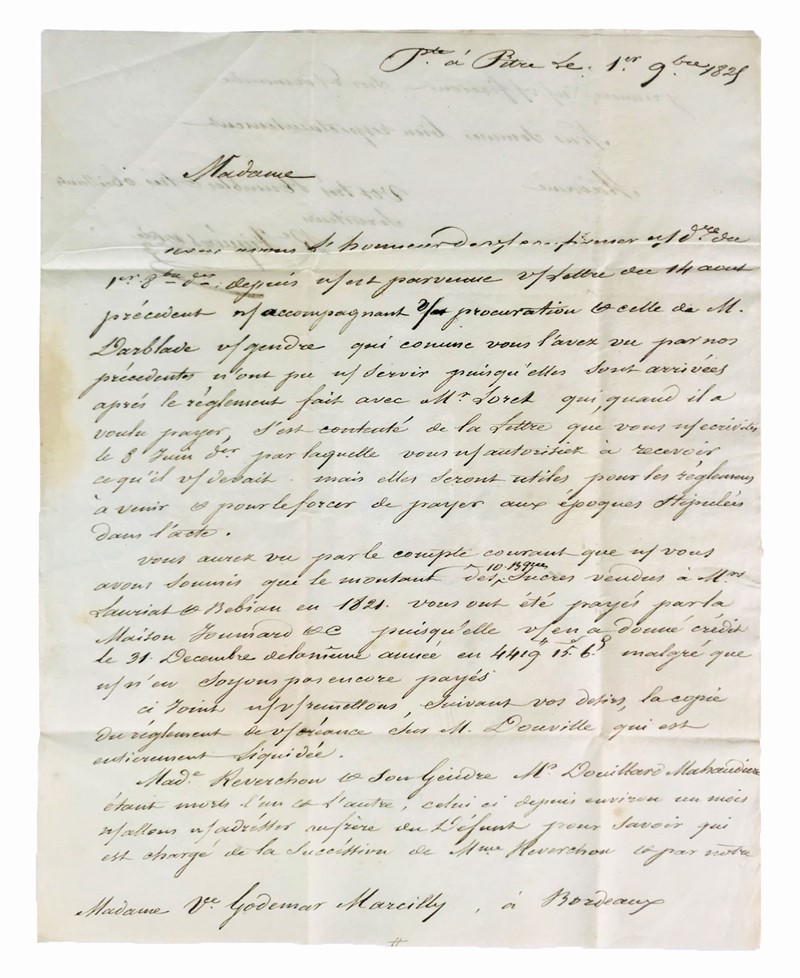 Pte à Pitre Le. 1er 9bre 1825
Madame
nous avons L'honneur de n/ confirmer n/ dre du
1er 8bre der. depuis n/est parvenue v/Lettre du 14 aout
précédent n/accompagnant v/ procuration & celle de M.
Darblade v/gendre qui comme vous l'avez vu par nos
précédentes n'ont pu n/servir puisqu'elles sont arrivées
aprés le réglement fait avec Mr Loret qui, quand il a
voulu payer, s'est contenté de la Lettre que vous n/ecrivites
le 8 Juin der par laquelle vous n/autorisiez à recevoir
ce qu'il v/devait. mais elles seront utiles pour les réglemens
à venir & pour le forcer de payer aux époques stipulées
dans l'acte.
vous aurez vu par le compte courant que n/vous
avons soumis que le montant des 10 Bques Sucres vendus à Mrs
Lauriat & Bebian en 1821. vous ont été payés par la
Maison Joumard & C puisqu'elle v/en a donné crédit
le 31. Decembre de la même année en 4419 15 6. malgré que
n/n'en soyons pas encore payés
ci Joint n/v/remettons, suivant vos desirs, la copie
du réglement de v/créance chés M. Douville qui est
entierement liquidée.
Made Reverchon & Son Gendre Mr Douillard Mahaudiere
étant morts l'un & l'autre, celui ci depuis environ un mois
n/allons n/adrésser au frère du Défunt pour savoir qui
est chargé de la Succéssion de Mme Reverchon & par notre
Madame Ve Godemar Marcilly, à Bordeaux